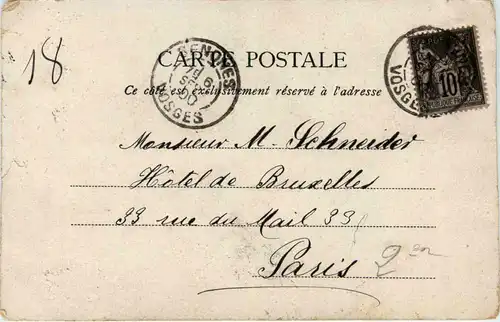 18
CARTE POSTALE
Ce côté est exclusivement réservé à l'adresse
VOSGES
VOSGES
10
Monsieur M. Schneider
Hôtel de Bruxelles
33 rue du Mail 33
Paris